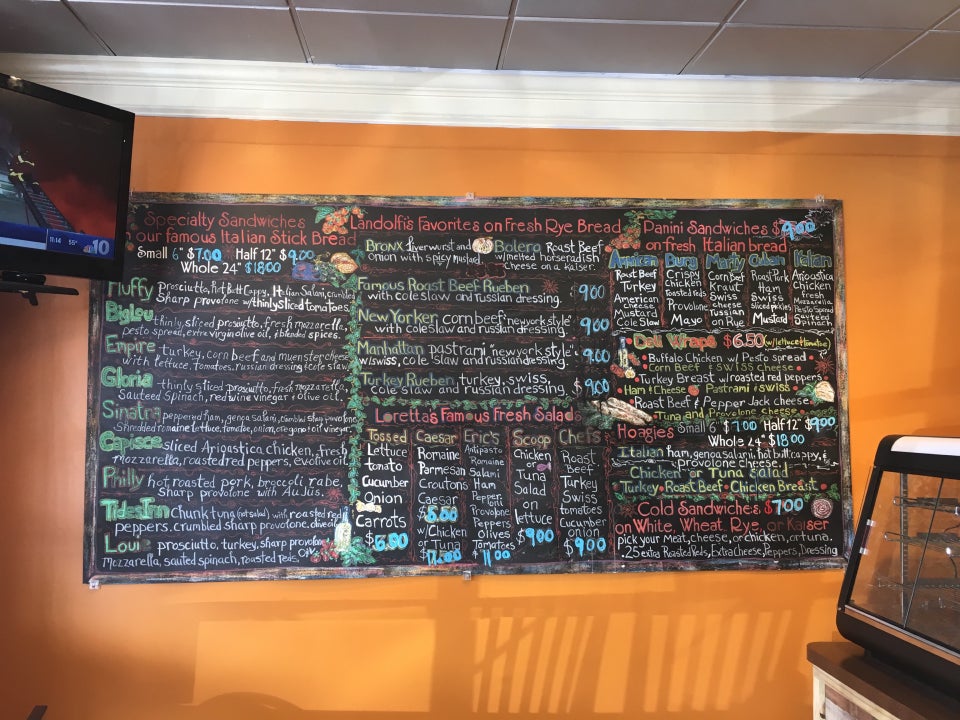 Specialty Sandwiches
our famous Italian Stick Bread
Small 6" $7.00 Half 12" $9.00
Whole 24" $18.00
Fluffy Prosciutto, Hot Butt Cappy, Italian Salami, crumbled
Sharp provolone w/thinly sliced tomatoes.
BigLou thinly, sliced prosciutto, fresh mozzarella,
pesto spread, extra virgin olive oil, + blended spices.
Empire turkey, corn beef and muenster cheese
with lettuce. Tomatoes. Russian dressing + cole slaw
Gloria thinly sliced prosciutto, fresh mozzarella,
Sauteed Spinach, red wine vinegar + olive oil.
Sinatra peppered ham, genoa salami, sharp provolone
Shredded romaine lettuce, tomatoe, onion, oregano + oil vinegar
Capisce sliced Arigastica chicken, fresh
Mozzarella, roasted red peppers, evoliveoil
Philly hot roasted pork, broccoli rabe,
Sharp provolone with Au Jus.
TidesInn Chunk tuna (not salad) with roasted red
peppers. crumbled sharp provolone, olive oil
Louie prosciutto, turkey, sharp provolone
Mozzarella, sauted spinach, roasted Reds,
Landolfi's Favorites on Fresh Rye Bread
Bronx liverwurst and
onion with spicy mustard
Bolera Roast Beef
w/melted horseradish
cheese on a Kaiser.
Famous Roast Beef Rueben
with cole slaw and russian dressing. 9.00
New Yorker corn beef "new york style"
with coleslaw and russian dressing 9.00
Manhattan pastrami "new york style"
w/swiss, cole slaw and russian dressing. 9.00
Turkey Rueben, turkey, swiss,
cole slaw and russian dressing. $9.00
Loretta's Famous Fresh Salads
Tossed
Lettuce
tomato
Cucumber
Onion
Carrots
$6.00
Caesar
Romaine
Parmesan
Croutons
Caesar
$6.50
w/Chicken
or Tuna
7.50
Eric's
Antipasto
Romaine
Salami
Ham
Pepper.
Provolone
Peppers
Olives
Tomatoes
11.00
Scoop
Chicken
or
Tuna
Salad
on
lettuce
$9.00
Chefs
Roast
Beef
Turkey
Swiss
tomatoes
Cucumber
onion
$9.00
Panini Sandwiches $9.00
on fresh Italian bread
American
Roast Beef
Turkey
American
Cheese
Mustard
Cole Slaw
Burg
Crispy
Chicken
Roasted Reds
Provolone
Mayo
Marty
Corn Beef
Kraut
Swiss
cheese
russian
on Rye
Cuban
Roast Pork
Ham
Swiss
pickles
Mustard
Italian
Arigastica
Chicken
fresh
Mozzarella
Pesto Spread
Sauteed
Spinach
Deli Wraps $6.50 (w/lettuce + tomatoe)
• Buffalo Chicken w/ Pesto spread •
• Corn Beef + swiss cheese •
• Turkey Breast w/roasted red peppers
• Ham + Cheese • Pastrami + swiss •
• Roast Beef + Pepper Jack cheese
• Tuna and Provolone cheese •
Hoagies Small 6" $7.00 Half 12" $9.00
Whole 24" $18.00
Italian ham, genoa salami, hot cappy, +
provolone cheese.
Chicken or Tuna Salad
• Turkey • Roast Beef • Chicken Breast •
Cold Sandwiches $7.00
on White, Wheat, Rye, or Kaiser
pick your meat, cheese, or chicken, or tuna.
.25 extra Roasted Reds, Extra cheese, Peppers, Dressing
11:14 55° 10